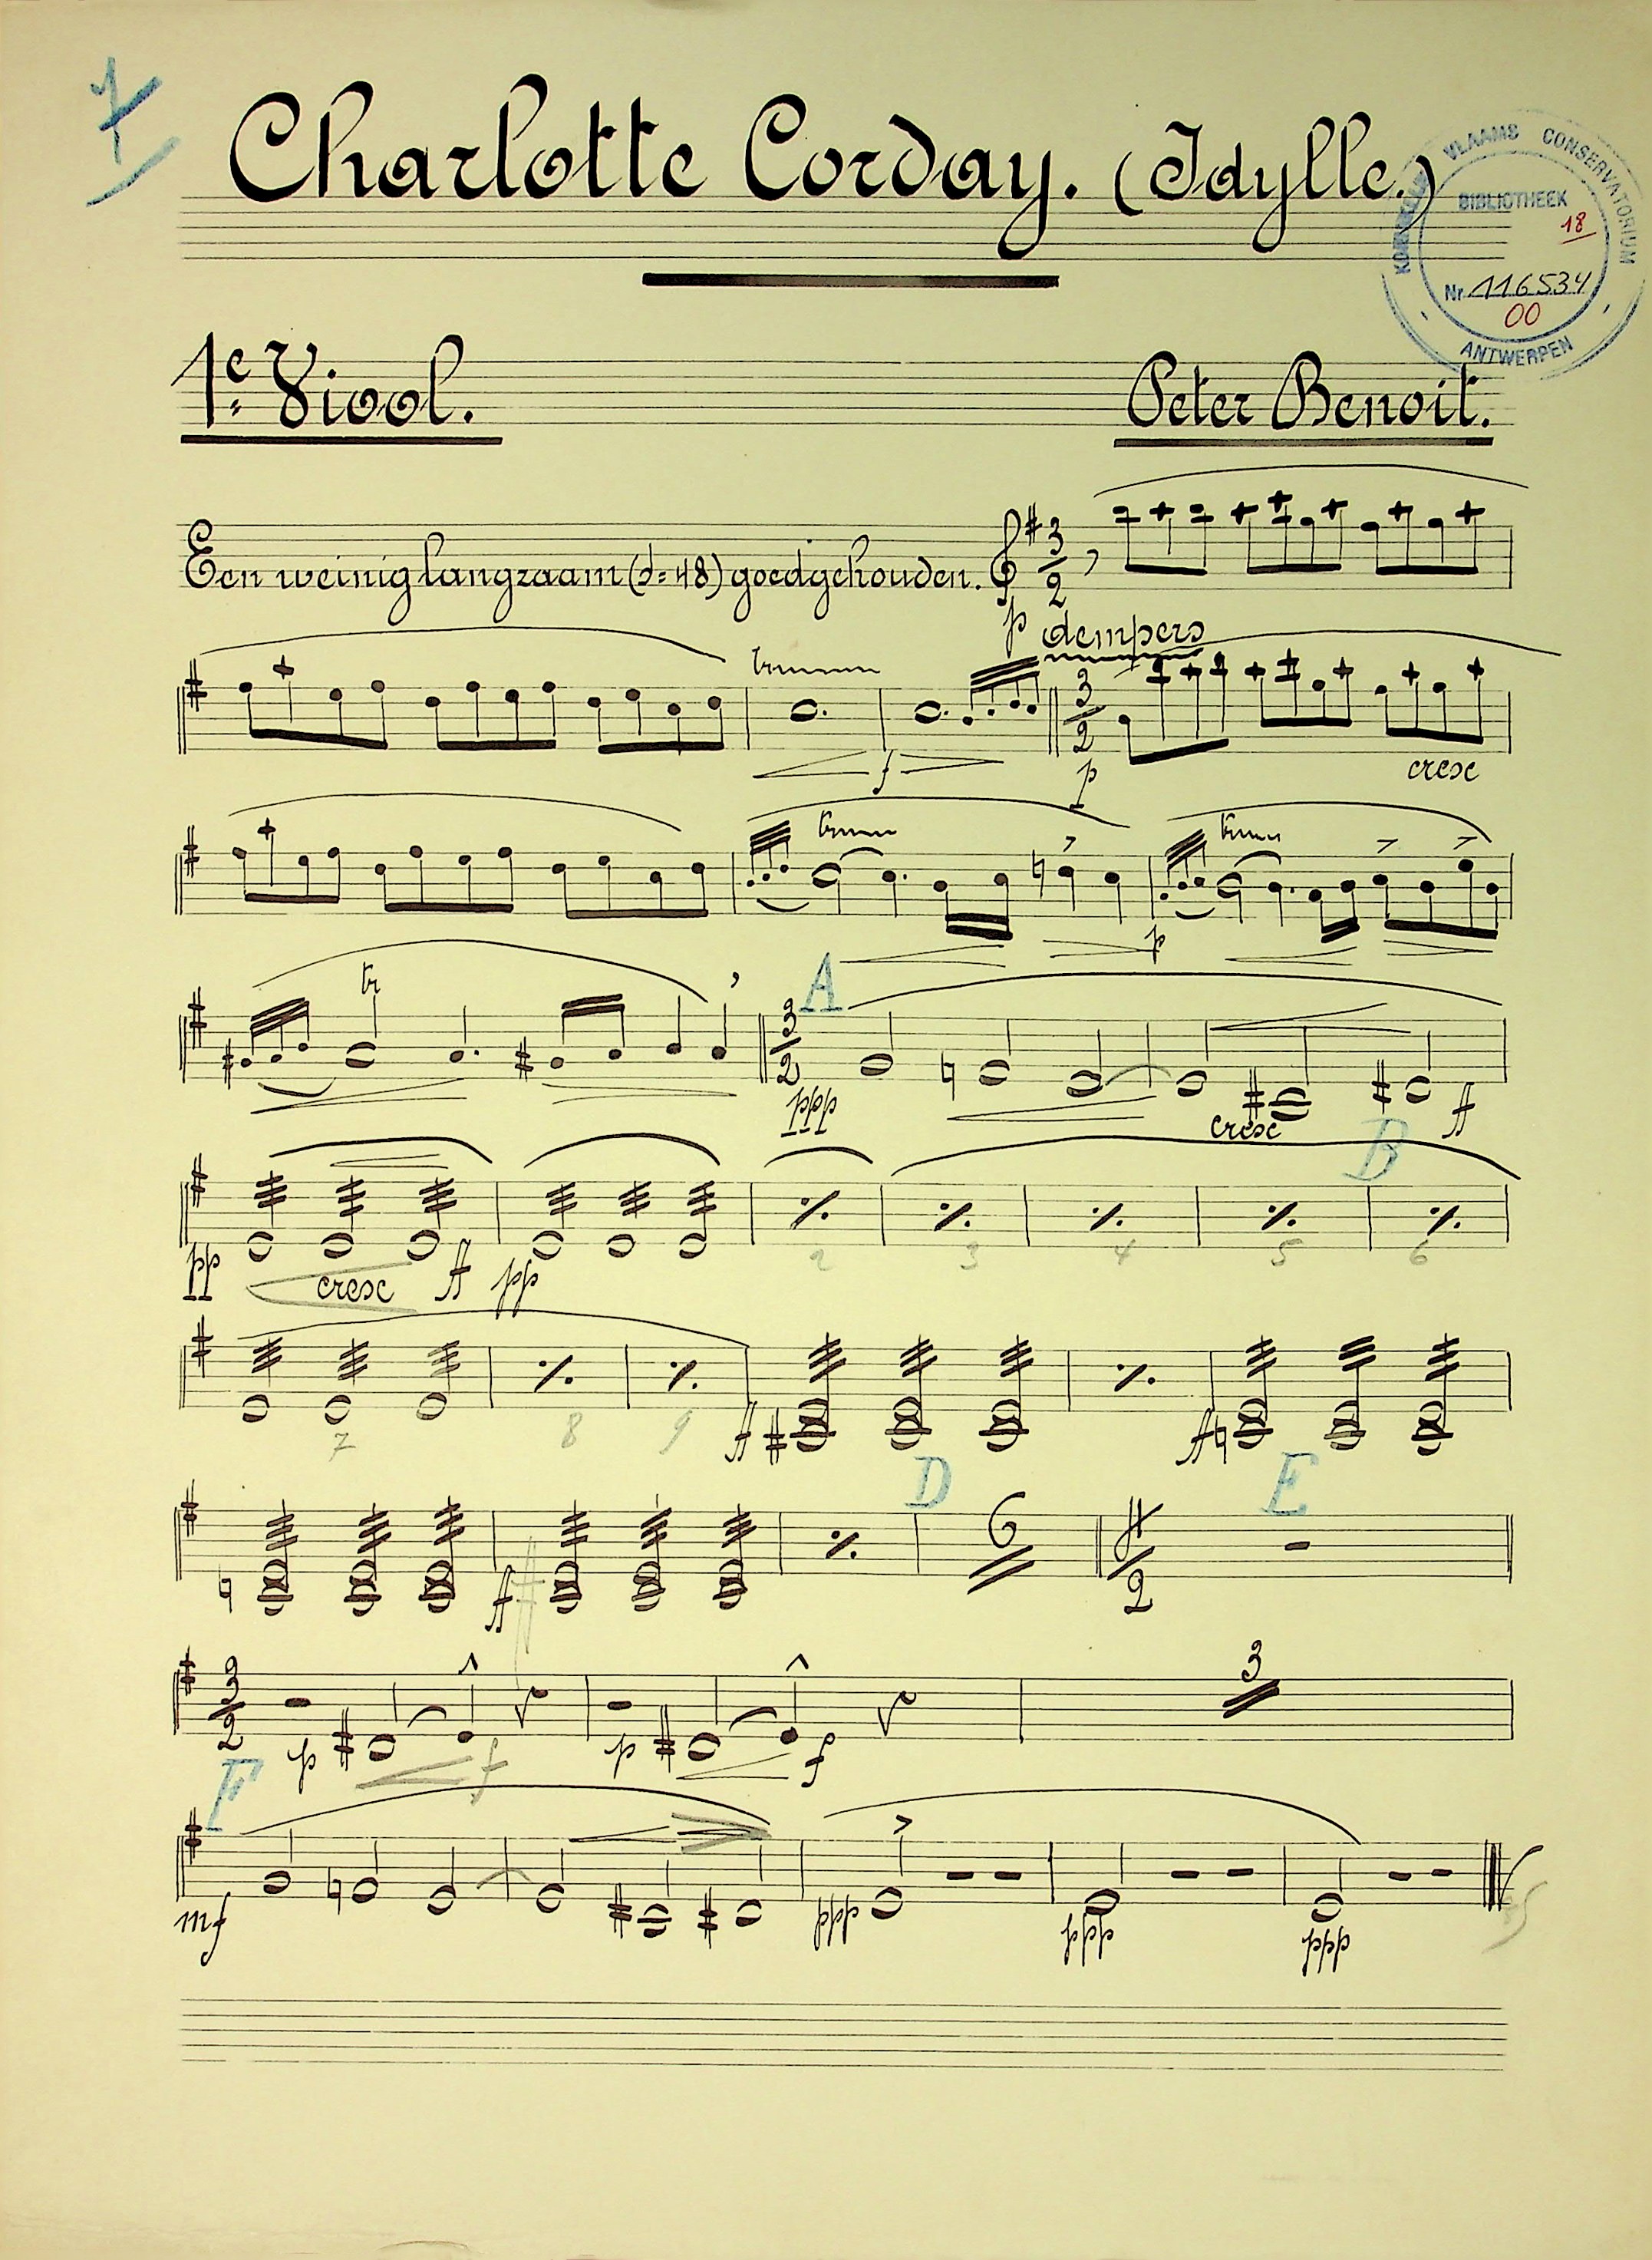 7
Charlotte Corday. (Idylle.)
KONINKLIJK VLAAMS CONSERVATORIUM
BIBLIOTHEEK
18
Nr 116534
00
ANTWERPEN
1e Viool.
Peter Benoit.
Een weinig langzaam (𝅗𝅥 = 48) goedgehouden. 3/2
p dempers
tr
3/2
f
p
cresc
tr
tr
p
tr
A
3/2
ppp
cresc
B
pp
cresc
pp
2 3 4 5 6
7 8 9
D
E
6
2
3/2
3
p f p f
F
mf
ppp
ppp
ppp